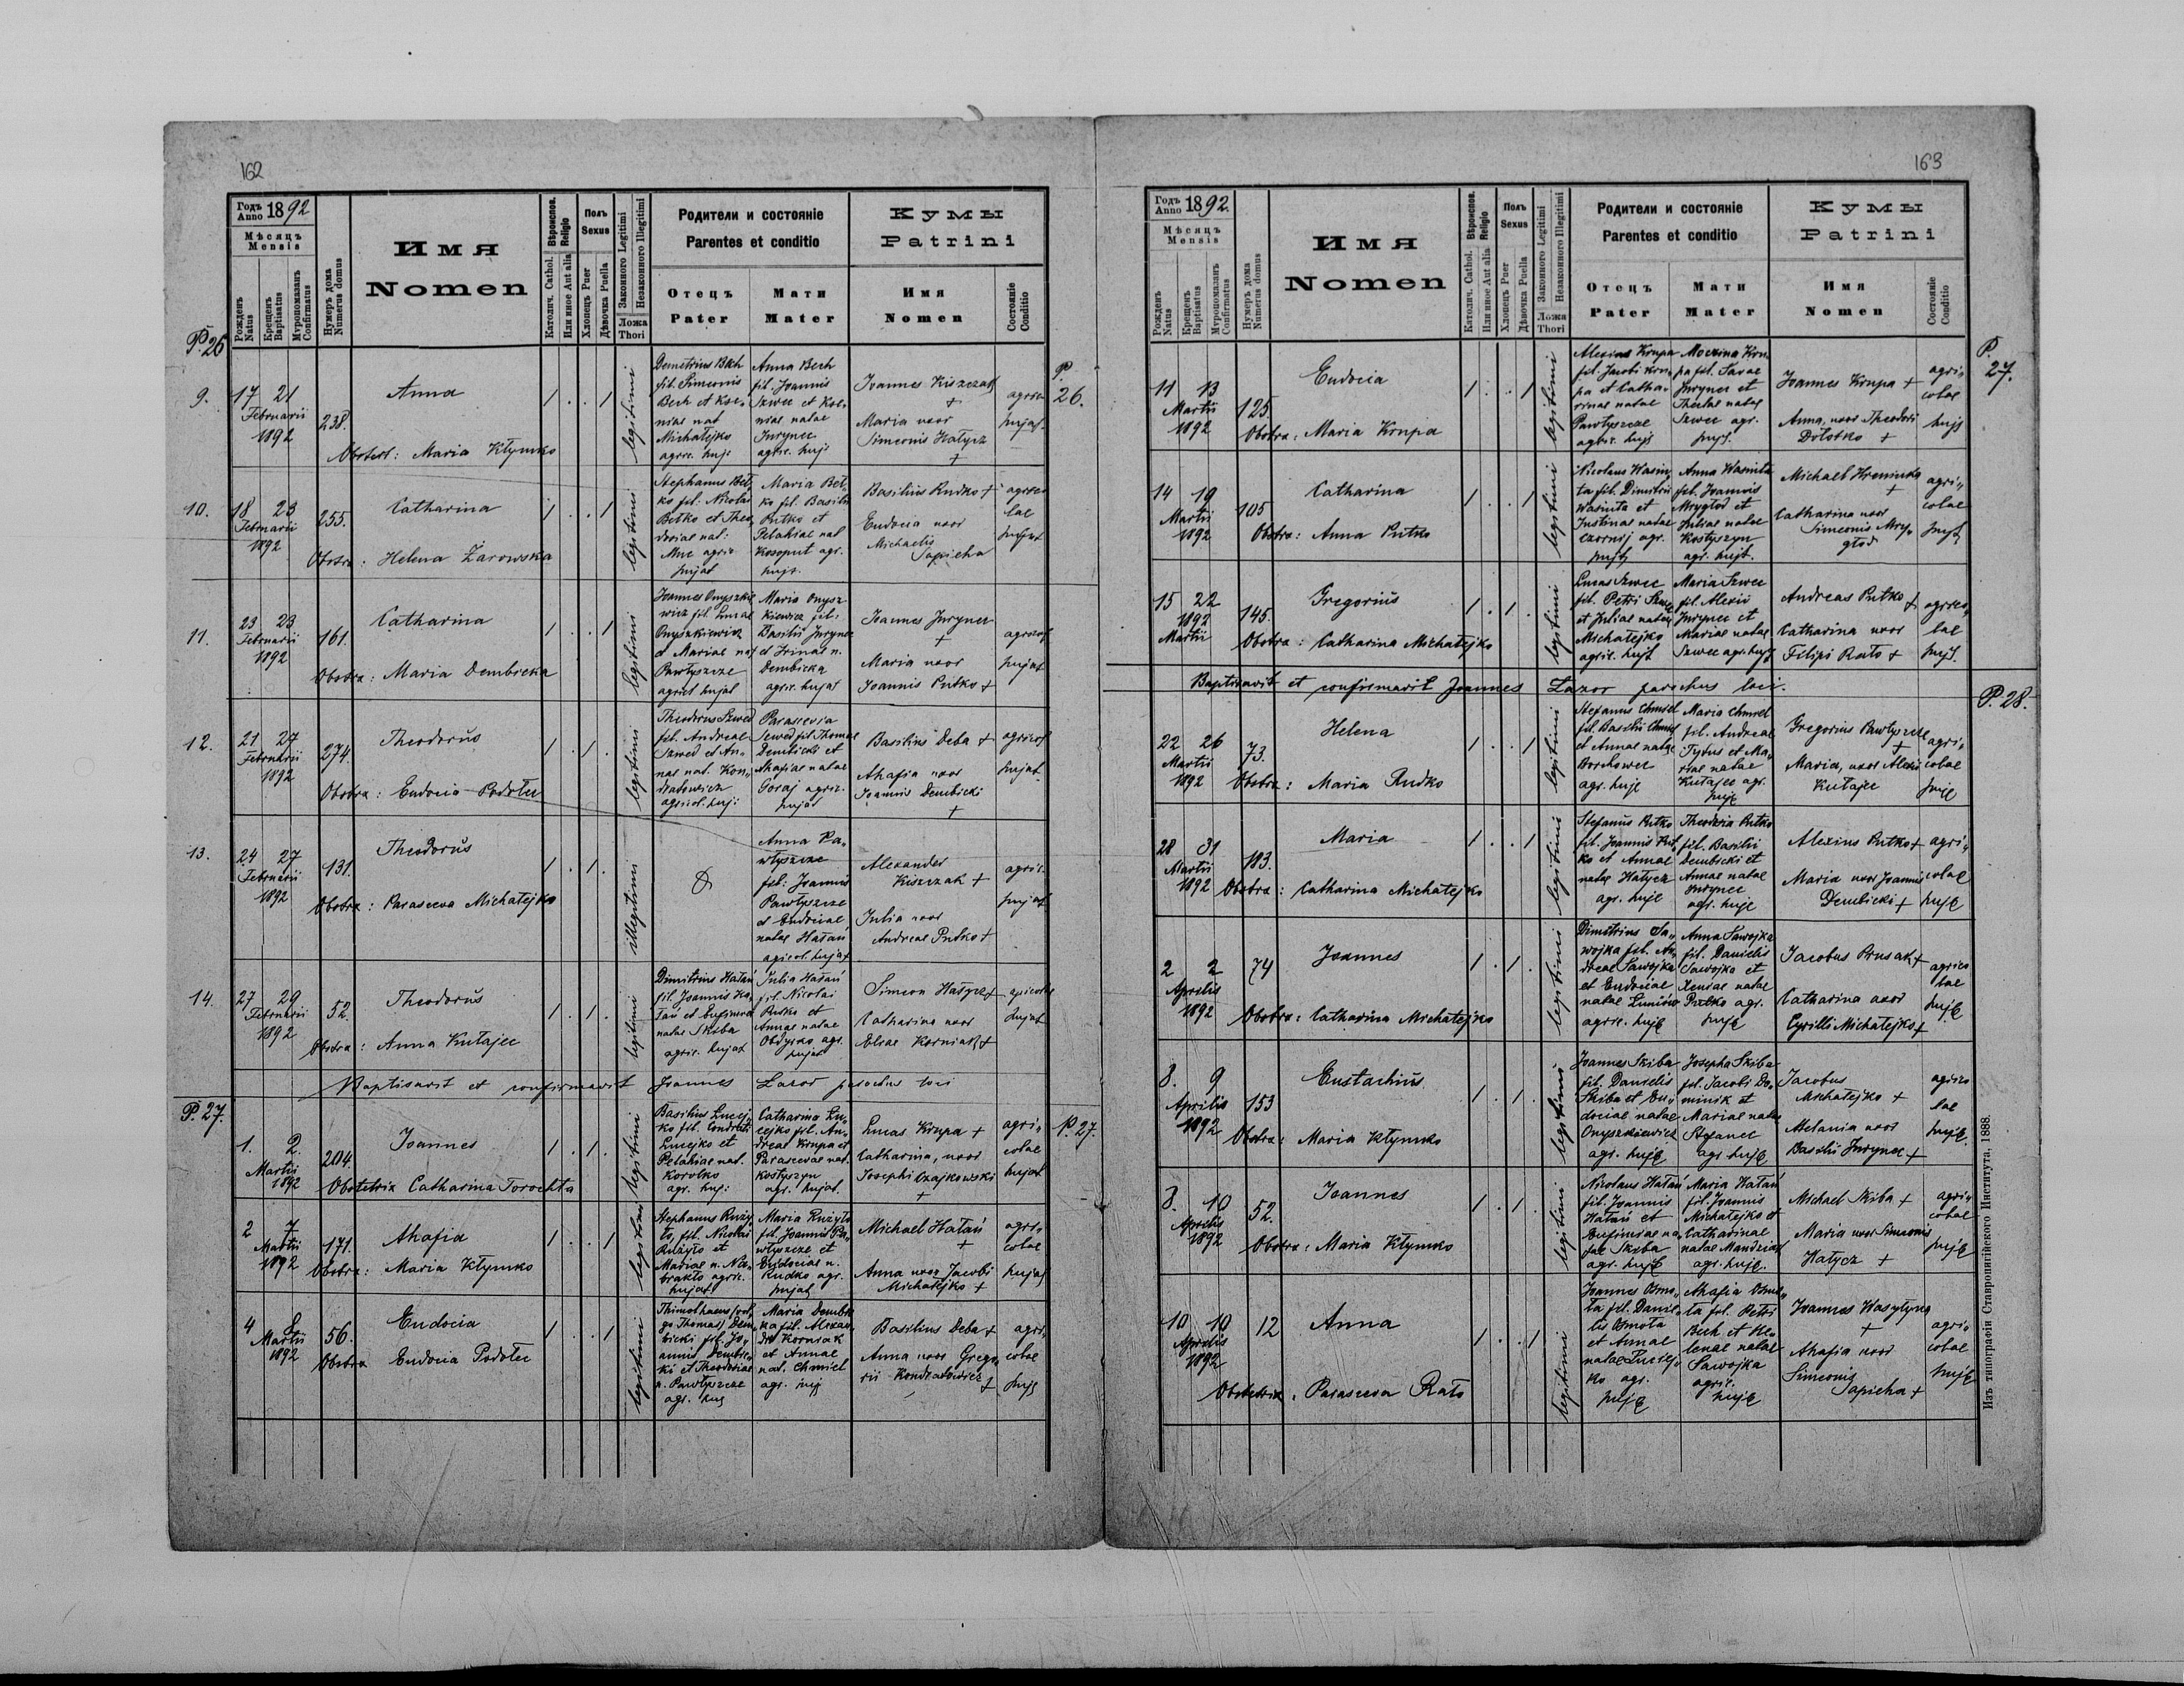 162
Годъ Anno 1892
Мѣсяцъ
Mensis
Рожденъ Natus
Крещенъ Baptisatus
Мѵропомазанъ Confirmatus
Нумеръ дома Numerus domus
Имя
Nomen
Вѣроиспов. Religio
Католич. Cathol.
Или иное Aut alia
Полъ Sexus
Хлопецъ Puer
Дѣвочка Puella
Законного Legitimi
Незаконного Illegitimi
Ложа Thori
Родители и состояніе
Parentes et conditio
Отецъ
Pater
Мати
Mater
Кумы
Patrini
Имя
Nomen
Состояніе
Conditio
P. 26
9.
17 21
Februarii
1892
238.
Anna
Obstetr: Maria Kłymko
legitimi
Demetrius Bech
fil. Simeonis
Bech et Xe-
niae nat
Michałejko
agric. huj:
Anna Bech
fil. Joannis
Szwec et Xe-
niae natae
Jurynec
agric. huj:
Joannes Kiszczak
+
Maria uxor
Simeonis Hałycz
+
agrico
hujat.
P.
26.
10.
18 23
Februarii
1892
255.
Catharina
Obstra: Helena Żarowska
legitimi
Stephanus Bet-
ko fil. Nicolai
Betko et Theo
dosiae nat:
agric
hujat
Maria Bet-
ko fil. Basilii
Rutko et
Pelahiae nat
Kosoput agr.
hujs.
Basilius Rudko +
Eudocia uxor
Michaelis
Sapieha
agrico
lae
hujat
11.
23 23
Februarii
1892
161.
Catharina
Obstra: Maria Dembicka
legitimi
Joannes Onyszkie
wicz fil. Lucae
Onyszkiewicz
et Mariae nat
Pawłyszcze
agricl hujat
Maria Onysz
kiewicz fil.
Basilii Jurynec
et Irinae n.
Dembicka
agric. hujat
Joannes Jurynec
+
Maria uxor
Joannis Putko +
agricol
hujat
12.
21 27
Februarii
1892
274.
Theodorŭs
Obstra: Eudocia Podołec
legitimi
Theodorus Szwed
fil. Andreae
Szwed et An-
nae nat. Kon-
dratowicz
agricol. huj:
Parascevia
Szwed fil Thomae
Dembicki et
Ahafiae natae
Goraj agric.
hujat
Basilius Deba +
Ahafia uxor
Joannis Dembicki
+
agricol
hujat.
13.
24 27
Februarii
1892
131.
Theodorŭs
Obstra: Parasceva Michałejko
illegitimi
Anna Pa-
włyszcze
fil: Joannis
Pawłyszcze
et Eudociae
natae Hałań
agricol. hujat
Alexander
Kiszczak +
Julia uxor
Andreae Putko +
agric.
hujat
14.
27 29
Februarii
1892
52.
Theodorŭs
Obstra: Anna Kutajec
legitimi
Dimitrius Hałań
fil. Joannis Ha-
łań et Eufimiae
natae Skiba
agric. hujat
Julia Hałań
fil. Nicolai
Rutko et
Annae natae
Obdyrko agr.
hujat
Simeon Hałycz +
Catharina uxor
Eliae Korniak +
agricolae
hujat
Baptisavit et confirmavit Joannes Lazor parochus loci
P. 27.
1. 2.
Martii
1892
204.
Joannes
Obstetrix Catharina Torochta
legitimi
Basilius Lucej-
ko fil. Condrati
Lucejko et
Pelahiae nat.
Korotko
agr. huj:
Catharina Lu-
cejko fil. An-
dreae Krupa et
Parascevae nat.
Kostyszyn
agr. hujat.
Lucas Krupa +
Catharina, uxor
Josephi Czajkowski
+
agri-
colae
hujat
P. 27.
2 7
Martii
1892
171.
Ahafia
Obstra: Maria Kłymko
legitimi
Stephanus Ruży-
ło, fil. Nicolai
Rużyło et
Mariae n. Na-
brakto agric.
hujat
Maria Rużyło
fil. Joannis Pa-
włyszcze et
Eudociae n.
Rudko agr.
hujat
Michael Hałań
+
Anna uxor Jacobi
Michałejko +
agri-
colae
hujat
4 8
Martii
1892
56.
Eudocia
Obstra Eudocia Podołec
legitimi
Thimothaeus (vul-
go Thomas) Dem-
bicki fil. Jo-
annis Dembic-
ki et Theodosiae
n. Pawłyszcze
agr. huj
Maria Dembic
ka fil. Alexan-
dri Korniak
et Annae
nat. Chmiel
agr. huj
Basilius Deba +
Anna uxor Grego-
rii Kondratowicz
+
agri-
colae
huj
163
Годъ Anno 1892.
Мѣсяцъ
Mensis
Рожденъ Natus
Крещенъ Baptisatus
Мѵропомазанъ Confirmatus
Нумеръ дома Numerus domus
Имя
Nomen
Вѣроиспов. Religio
Католич. Cathol.
Или иное Aut alia
Полъ Sexus
Хлопецъ Puer
Дѣвочка Puella
Законного Legitimi
Незаконного Illegitimi
Ложа Thori
Родители и состояніе
Parentes et conditio
Отецъ
Pater
Мати
Mater
Кумы
Patrini
Имя
Nomen
Состояніе
Conditio
11 13
Martii
1892
125.
Eudocia
Obstra: Maria Krupa
legitimi
Alexius Krupa
fil. Jacobi Kru-
pa et Catha-
rinae natae
Pawłyszcze
agric. hujs
Kru-
pa fil. Savae
Jurynec et
Theclae natae
Szwec agr.
hujs.
Joannes Krupa +
Anna, uxor Theodori
Dołotko +
agri-
colae
hujs
P.
27.
14 19
Martii
1892
105
Catharina
Obstra: Anna Putko
legitimi
Nicolaus Wasiu-
ta fil. Dimitrii
Wasiuta et
Justinae natae
czornij agr.
hujs
Anna Wasiuta
fil. Joannis
Mrygłod et
Juliae natae
Kostyszyn
agr. hujs.
Michael Hreniuko
+
Catharina uxor
Simeonis Mry-
głod
agri-
colae
hujs
15 22
1892
Martii
145.
Gregoriŭs
Obstra: Catharina Michałejko
legitimi
Lucas Szwec
fil. Petri Szwec
et Juliae natae
Michałejko
agric. hujs
Maria Szwec
fil. Alexii
Jurynec et
Mariae natae
Szwec agr. hujs
Andreas Putko +
Catharina uxor
Filipi Rato +
agrico-
lae
hujs.
Baptisavit et confirmavit Joannes Lazor parochus loci.
P. 28.
22 26
Martii
1892
73.
Helena
Obstra: Maria Rudko
legitimi
Stefanus Chmiel
fil. Basilii Chmiel
et Annae natae
Borchowec
agr. huję
Maria Chmiel
fil. Andreae
Tydus et Ma-
riae natae
Kutajec agr.
huję
Gregorius Pawłyszcze
+
Maria, uxor Alexii
Kutajec
agri-
colae
huję
28 31
Martii
1892
183.
Maria
Obstra: Catharina Michałejko
legitimi
Stefanŭs Putko
fil. Joannis Put-
ko et Annae
natae Hałycz
agr. huję
Theodosia Putko
fil. Basilii
Dembicki et
Annae natae
Jurynec
agr. huję
Alexius Putko +
Maria uxor Joannis
Dembicki +
agri-
colae
huję
2 2
Aprilis
1892
74
Joannes
Obstra: Catharina Michałejko
legitimi
Dimitrius Sa-
wojka fil. An-
dreae Sawojka
et Eudociae
natae
agric. huję
Anna Sawojka
fil. Danielis
Sawojka et
Xeniae natae
Putko agr.
huję
Jacobus Prusak +
Catharina uxor
Cyrilli Michałejko +
agrico
lae
huję
8. 9
Aprilis
1892
153
Eustachiŭs
Obstra: Maria Kłymko
legitimi
Joannes Skiba
fil. Danielis
Skiba et Eu-
dociae natae
Onyszkiewicz
agr. huję
Josepha Skiba
fil. Jacobi Do-
minik et
Mariae natae
Stefanec
agr. huję
Jacobus
Michałejko +
Melania uxor
Basilii Jurynec +
agrico
lae
huję.
8. 10
Aprilis
1892
52.
Joannes
Obstra: Maria Kłymko
legitimi
Nicolaus Hałań
fil. Joannis
Hałań et
Eufimiae na-
tae Skiba
agr. huję
Maria Hałań
fil. Joannis
Michałejko et
Catharinae
natae Mandziak
agr. huję.
Michael Skiba +
Maria uxor Simeonis
Hałycz +
agri-
colae
huję
10 10
Aprilis
1892
12
Anna
Obstetrix: Parasceva Rato
legitimi
Joannes Osmo-
ta fil. Danie-
lis Osmota
et Annae
natae Lucej-
ko agr.
huję
Ahafia Osmo-
ta fil. Petri
Bech et He-
lenae natae
Sawojka
agric.
huję
Joannes Wasyłyna
+
Ahafia uxor
Simeonis
Sapieha +
agri-
colae
huję
Изъ типографіи Ставропигійского Института, 1888.